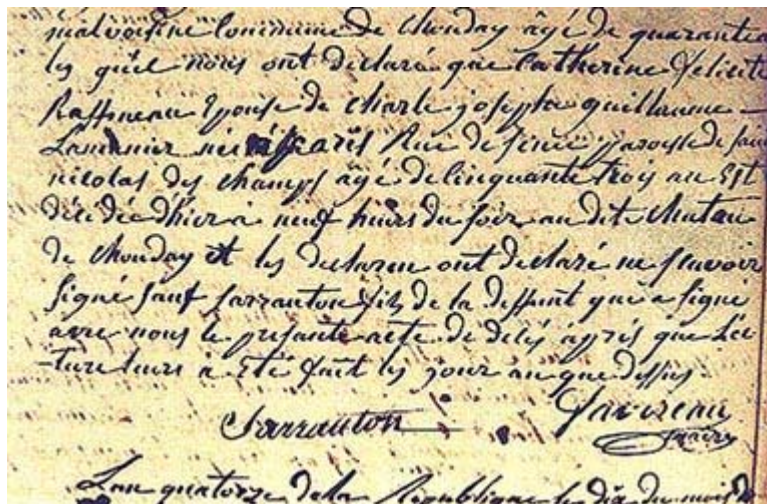 malvoisine Commune de Chouday âgé de quarante
les quel nous ont déclaré que Catherine félicité
Raffineau Epouse de Charle joseph guillaume
né à paris Rue de paroisse de
nicolas des champs âgé de Cinquante trois an Est
décédé d'hier à neuf heures du soir au dit chateau
de Chouday et les declaren ont declaré ne scavoir
signé sauf Sarrauton fils de la deffunt qui a signé
avec nous le présante acte de décés apprés que Lec
-ture leurs a Eté fait les jour an que dessus
Sarrauton
L'an quatorze de la République le du mois